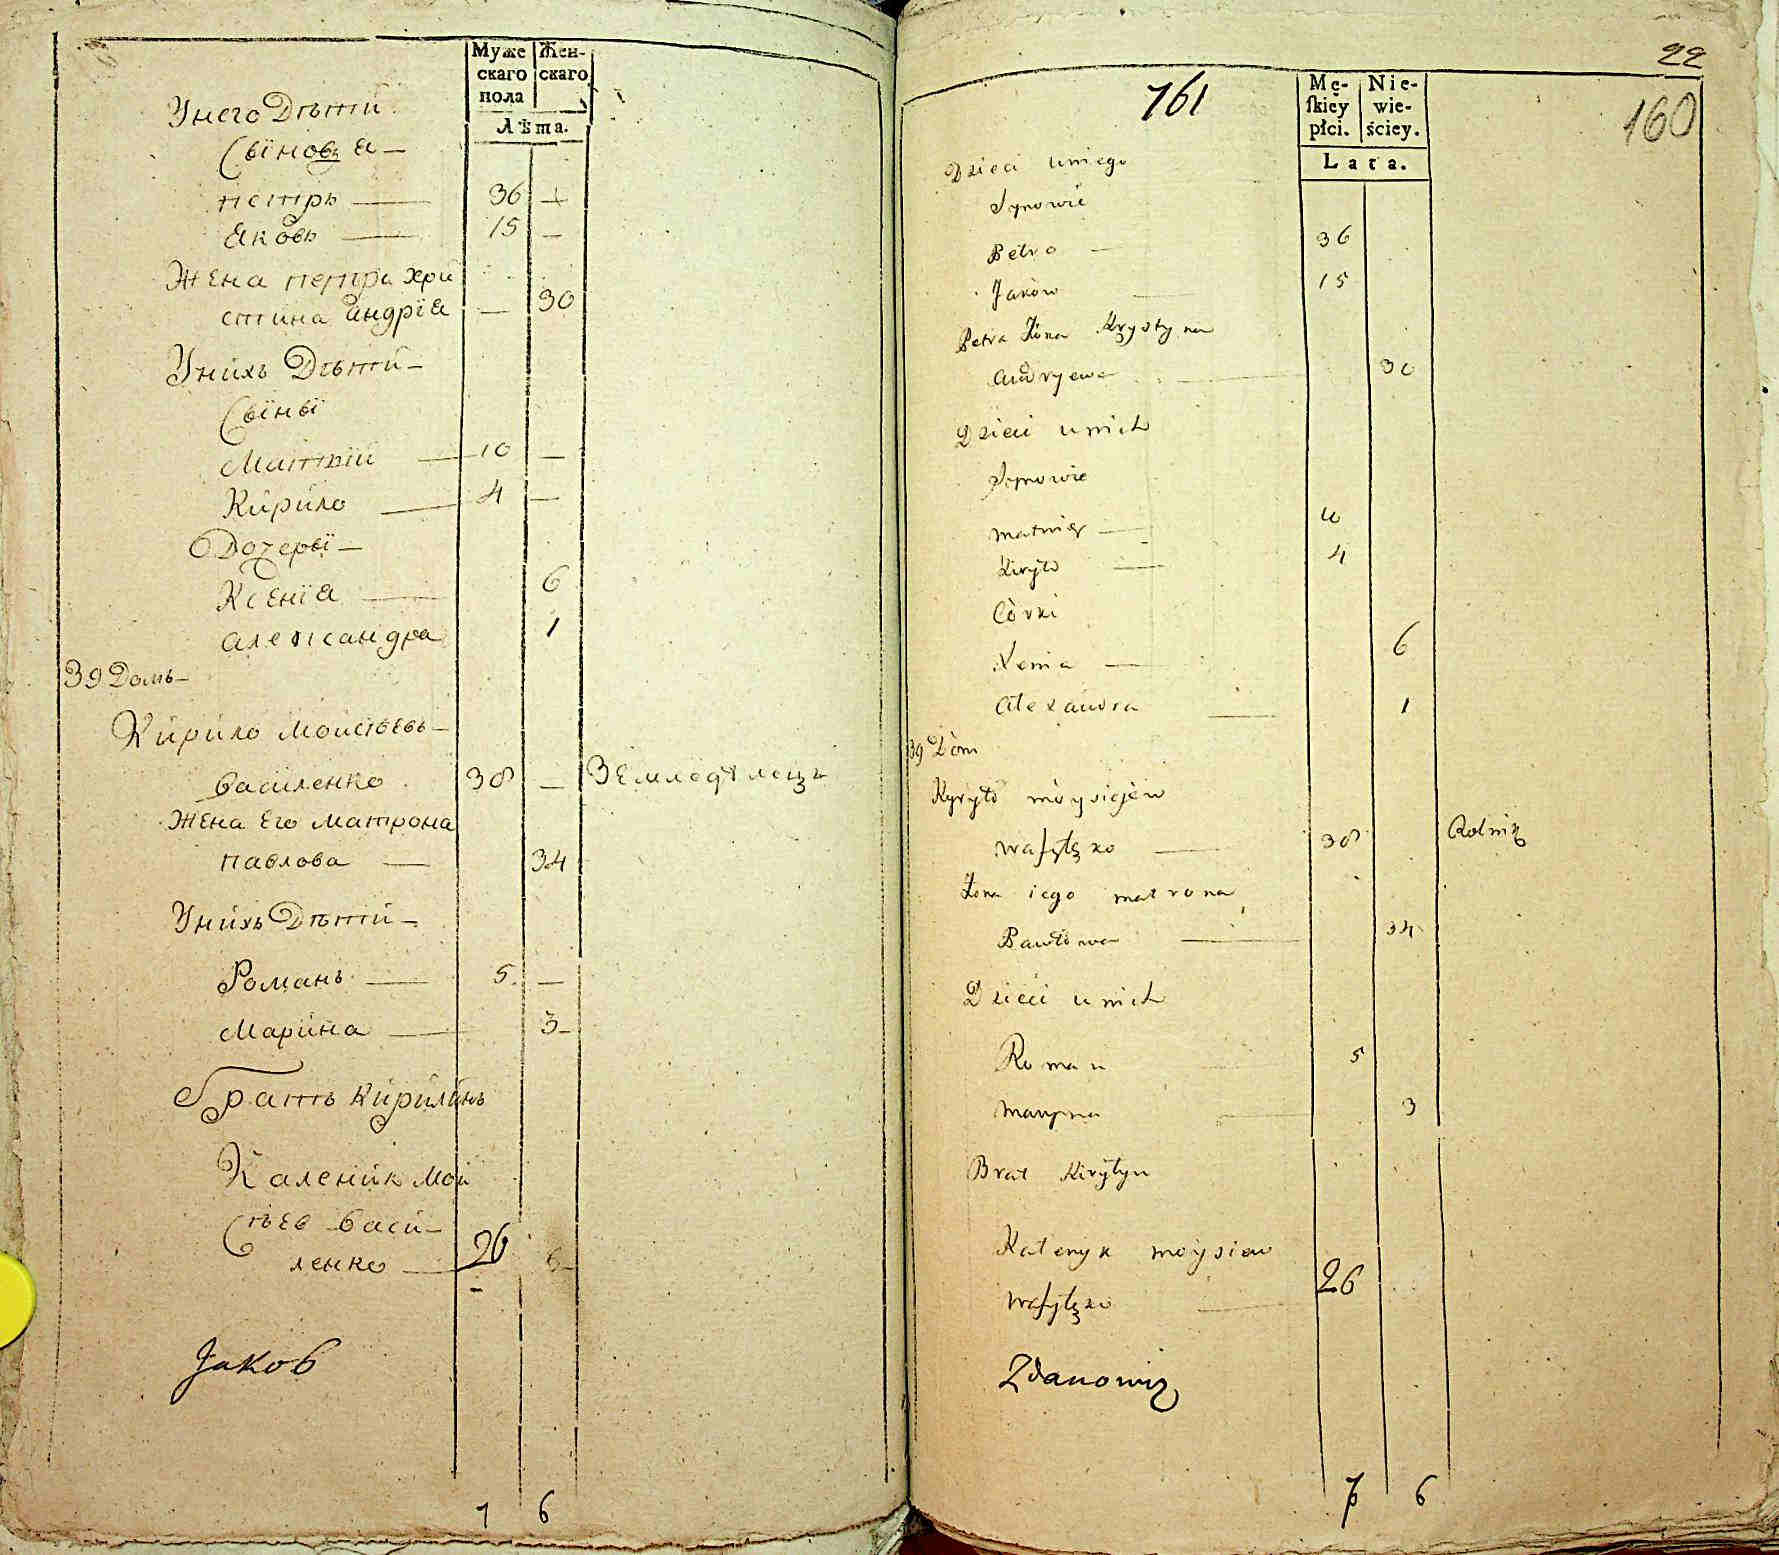 Муже
скаго
пола
Жен-
скаго
Лѣта.
Унего Дѣтей
Сыновя —
петръ — 36 —
Яковъ — 15 —
Жена петра хри
стина андрія — 30
Унихъ Дѣтей —
Сыны
Матвій — 10 —
Кирило — 4 —
Дочеры —
Ксенія — 6
александра 1
39 Домъ —
Кирило Моисѣевъ —
василенко 38 — Земледѣлецъ
Жена Его Матрона
павлова — 34
Унихъ Дѣтей —
Романъ — 5 —
Марина — 3 —
братъ Кирилинъ
Каленик Мои
сѣев васи —
ленко — 26
Jakob
7 6
22
761
160
Mę-
skiey
płci.
Nie-
wie-
ściey.
Lata.
Dzieci uniego
Synowie
Petro — 36
Jakow — 15
Petra Żona Krystyna
Andryewa — 30
Dzieci unich
Synowie
Matwiey — 10
Kiryło — 4
Córki
Xenia — 6
Alexandra — 1
39 Dom
Kyryło Moysiejew
Wasylęko — 38 Rolnik
Żona iego Matrona
Pawłowa — 34
Dzieci unich
Roman 5
Maryna — 3
Brat Kiryłyn
Kalenyk Moysiew 26
Wasylęko —
Zdanowicz
7 6